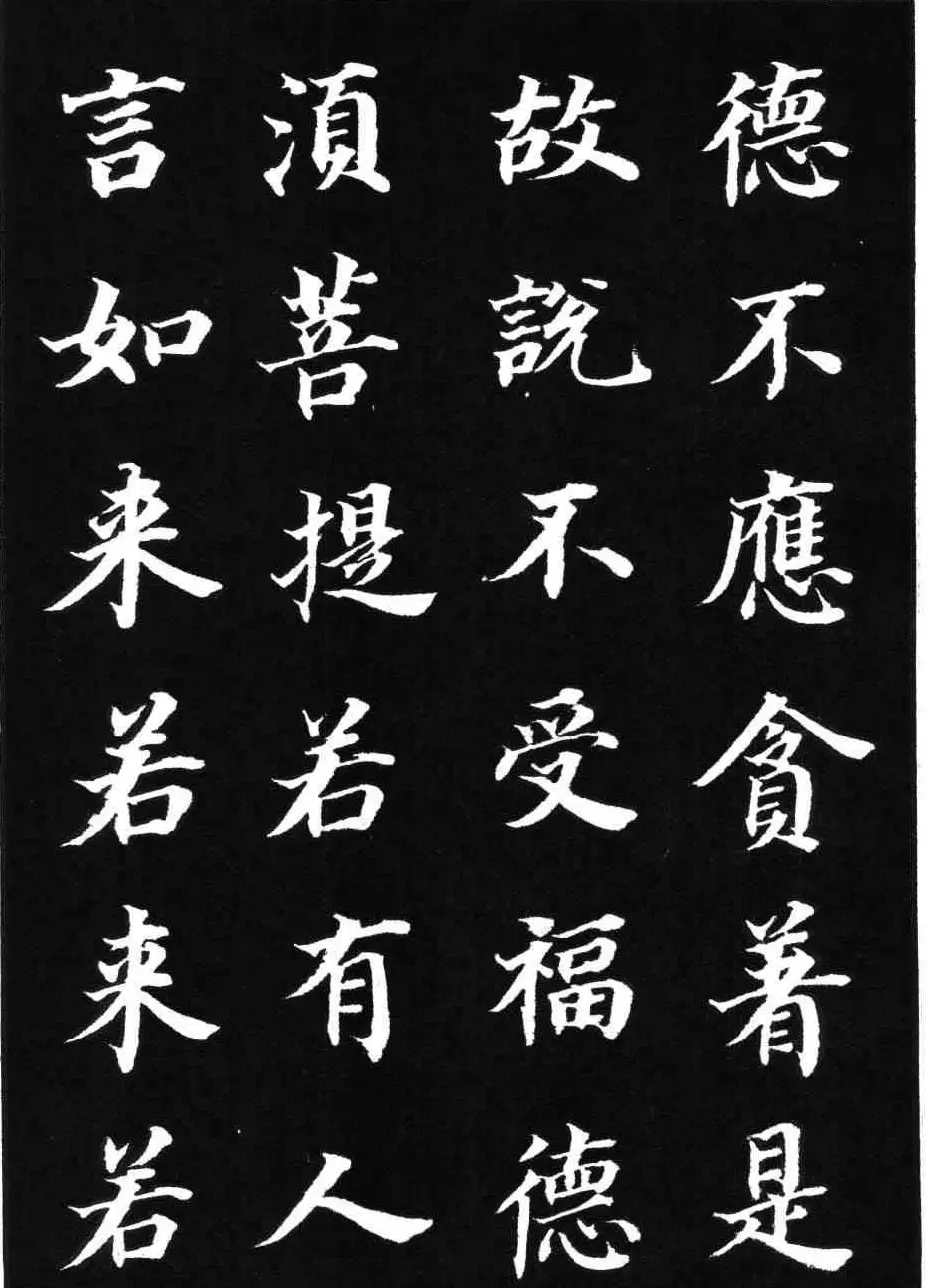 德不應貪著是
故說不受福德
湏菩提若有人
言如来若来若